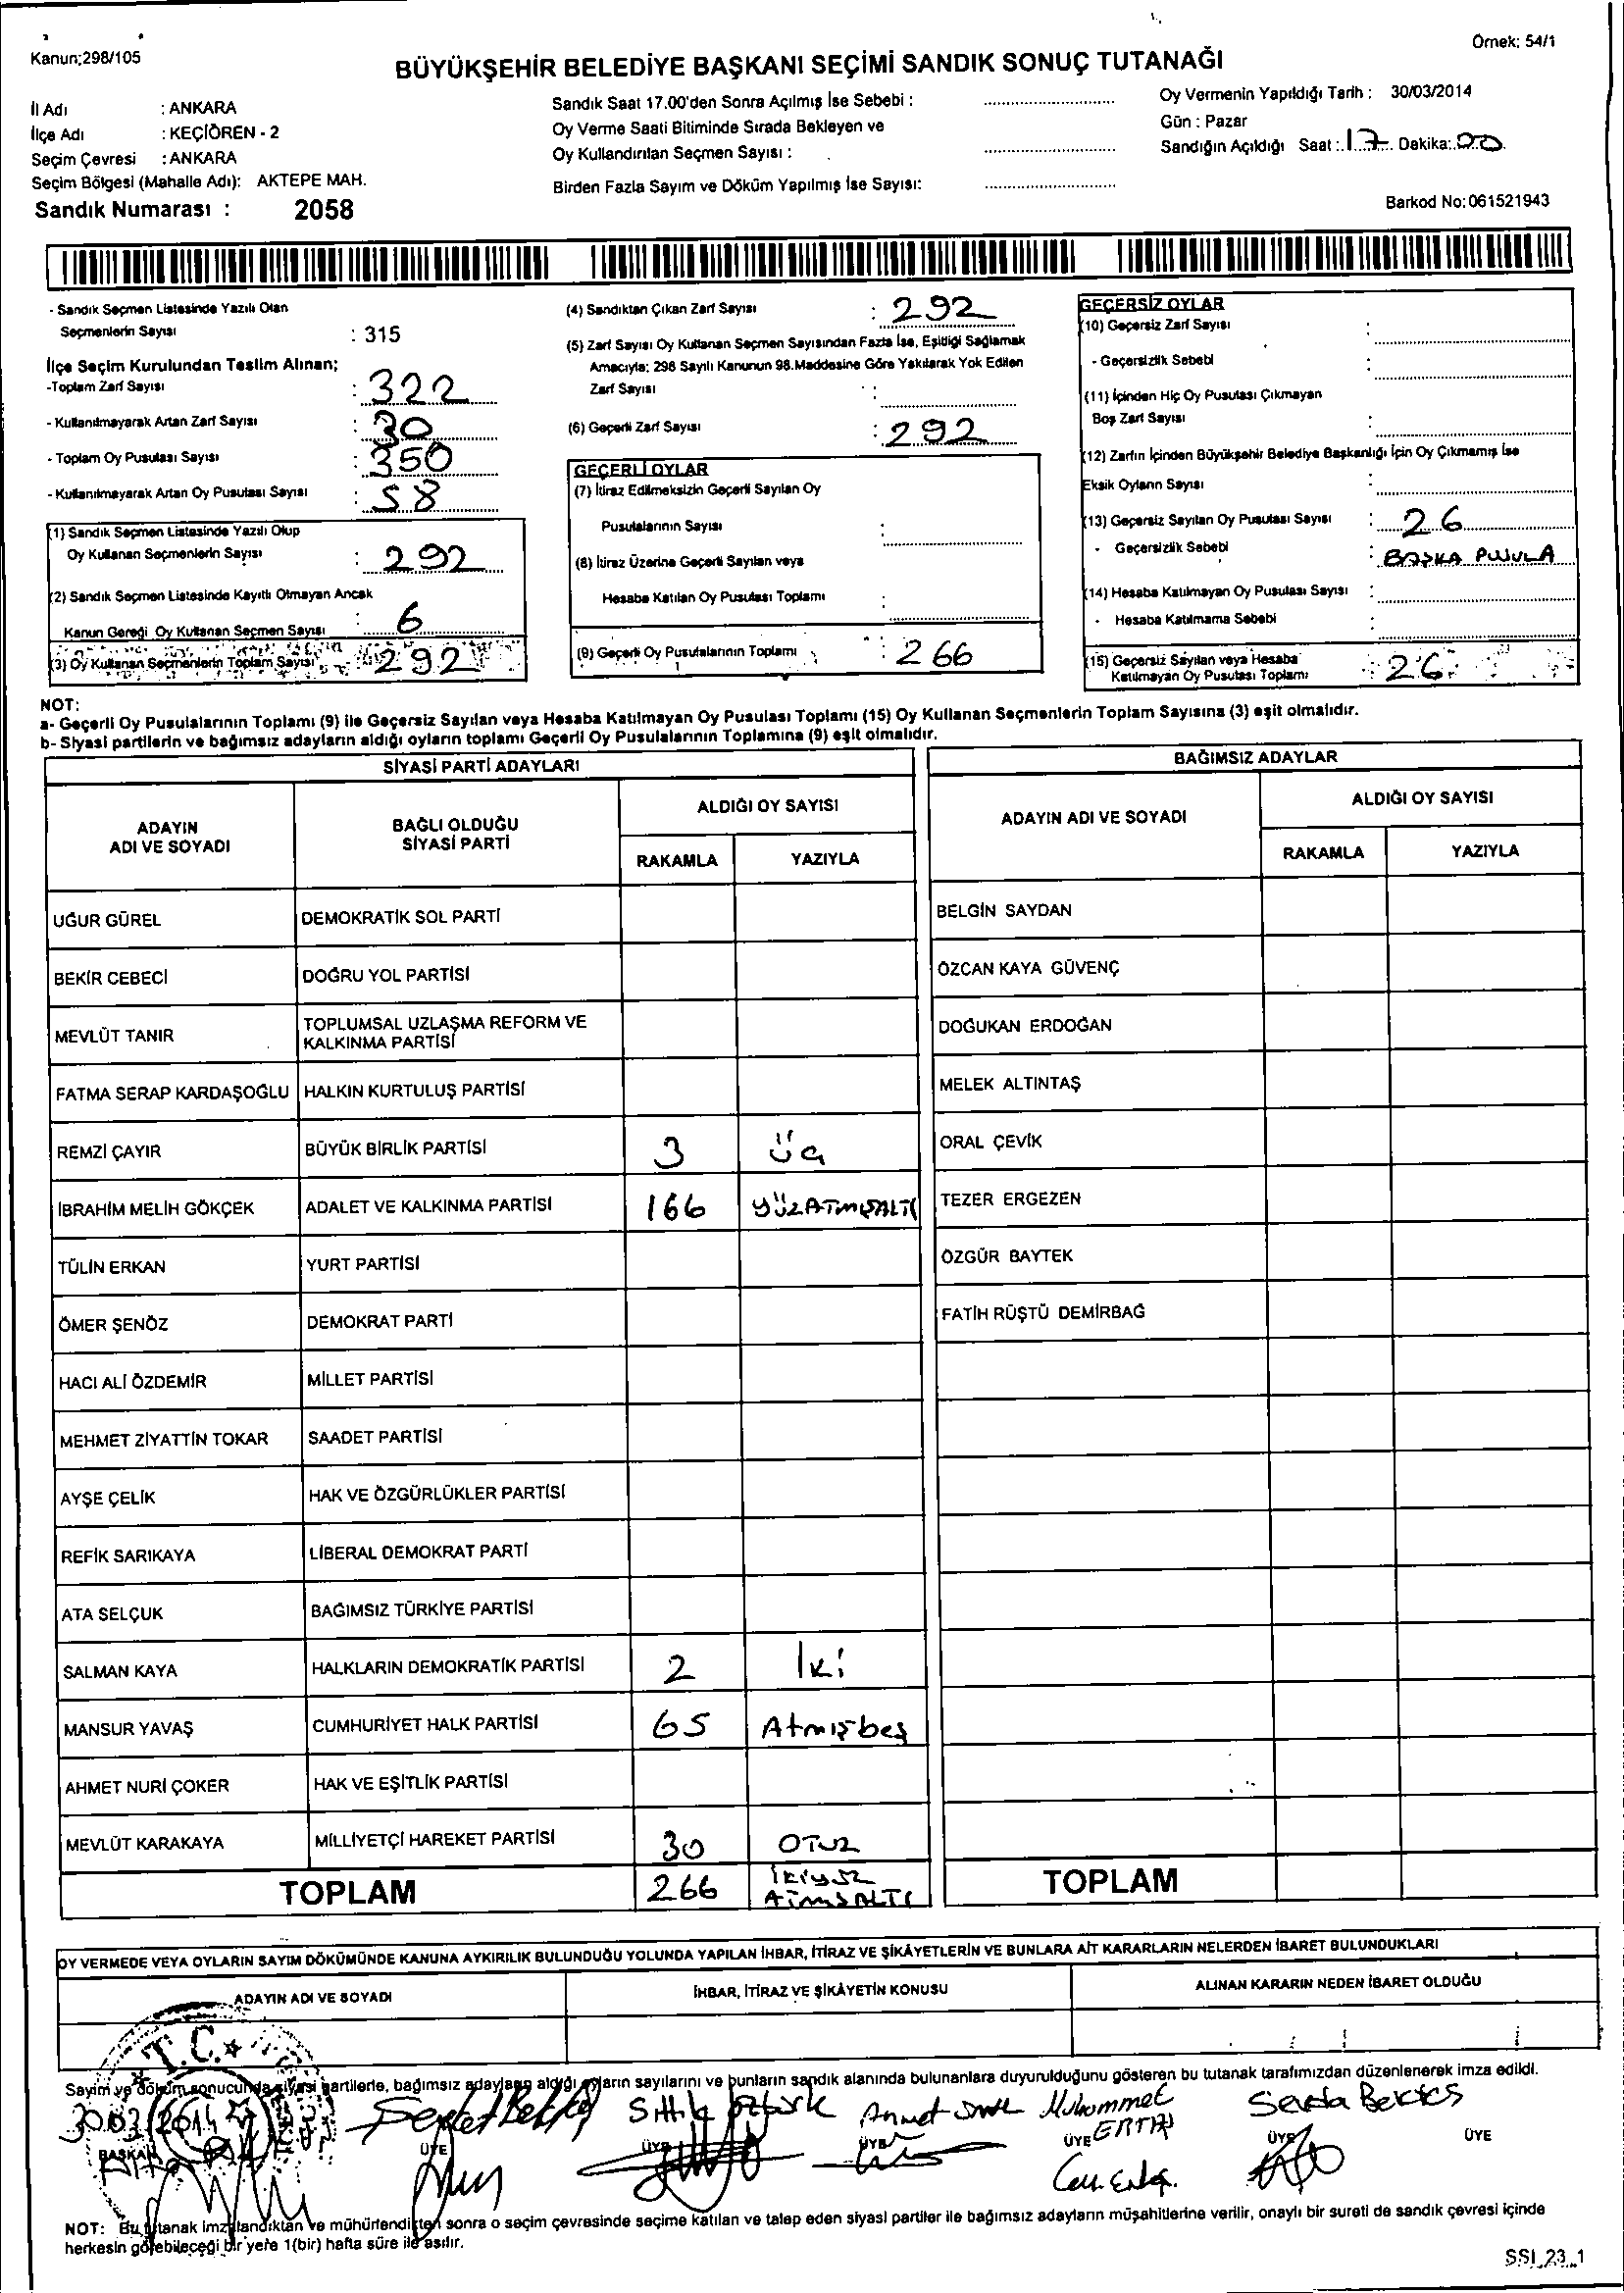 Kanun;298/105
Örnek: 54/1
BÜYÜKŞEHİR BELEDİYE BAŞKANI SEÇİMİ SANDIK SONUÇ TUTANAĞI
İl Adı : ANKARA
İlçe Adı : KEÇİÖREN - 2
Seçim Çevresi : ANKARA
Seçim Bölgesi (Mahalle Adı): AKTEPE MAH.
Sandık Numarası : 2058
Sandık Saat 17.00'den Sonra Açılmış İse Sebebi :
Oy Verme Saati Bitiminde Sırada Bekleyen ve
Oy Kullandırılan Seçmen Sayısı :
Birden Fazla Sayım ve Döküm Yapılmış İse Sayısı:
Oy Vermenin Yapıldığı Tarih : 30/03/2014
Gün : Pazar
Sandığın Açıldığı Saat : 17 Dakika: 00
Barkod No:061521943
- Sandık Seçmen Listesinde Yazılı Olan
Seçmenlerin Sayısı : 315
İlçe Seçim Kurulundan Teslim Alınan;
-Toplam Zarf Sayısı : 322
- Kullanılmayarak Artan Zarf Sayısı : 30
- Toplam Oy Pusulası Sayısı : 350
- Kullanılmayarak Artan Oy Pusulası Sayısı : 58
(1) Sandık Seçmen Listesinde Yazılı Olup
Oy Kullanan Seçmenlerin Sayısı : 292
(2) Sandık Seçmen Listesinde Kayıtlı Olmayan Ancak
Kanun Gereği Oy Kullanan Seçmen Sayısı : 6
(3) Oy Kullanan Seçmenlerin Toplam Sayısı : 292
(4) Sandıktan Çıkan Zarf Sayısı : 292
(5) Zarf Sayısı Oy Kullanan Seçmen Sayısından Fazla İse, Eşitliği Sağlamak
Amacıyla; 298 Sayılı Kanunun 98.Maddesine Göre Yakılarak Yok Edilen
Zarf Sayısı :
(6) Geçerli Zarf Sayısı : 292
GEÇERLİ OYLAR
(7) İtiraz Edilmeksizin Geçerli Sayılan Oy
Pusulalarının Sayısı :
(8) İtiraz Üzerine Geçerli Sayılan veya
Hesaba Katılan Oy Pusulası Toplamı :
(9) Geçerli Oy Pusulalarının Toplamı : 266
GEÇERSİZ OYLAR
(10) Geçersiz Zarf Sayısı :
- Geçersizlik Sebebi :
(11) İçinden Hiç Oy Pusulası Çıkmayan
Boş Zarf Sayısı :
(12) Zarfın İçinden Büyükşehir Belediye Başkanlığı İçin Oy Çıkmamış İse
Eksik Oyların Sayısı :
(13) Geçersiz Sayılan Oy Pusulası Sayısı : 26
- Geçersizlik Sebebi : BAŞKA PUSULA
(14) Hesaba Katılmayan Oy Pusulası Sayısı :
- Hesaba Katılmama Sebebi :
(15) Geçersiz Sayılan veya Hesaba
Katılmayan Oy Pusulası Toplamı : 26
NOT:
a- Geçerli Oy Pusulalarının Toplamı (9) ile Geçersiz Sayılan veya Hesaba Katılmayan Oy Pusulası Toplamı (15) Oy Kullanan Seçmenlerin Toplam Sayısına (3) eşit olmalıdır.
b- Siyasi partilerin ve bağımsız adayların aldığı oyların toplamı Geçerli Oy Pusulalarının Toplamına (9) eşit olmalıdır.
SİYASİ PARTİ ADAYLARI
ADAYIN ADI VE SOYADI
BAĞLI OLDUĞU SİYASİ PARTİ
ALDIĞI OY SAYISI
RAKAMLA YAZIYLA
UĞUR GÜREL DEMOKRATİK SOL PARTİ
BEKİR CEBECİ DOĞRU YOL PARTİSİ
MEVLÜT TANIR TOPLUMSAL UZLAŞMA REFORM VE KALKINMA PARTİSİ
FATMA SERAP KARDAŞOĞLU HALKIN KURTULUŞ PARTİSİ
REMZİ ÇAYIR BÜYÜK BİRLİK PARTİSİ 3 ÜÇ
İBRAHİM MELİH GÖKÇEK ADALET VE KALKINMA PARTİSİ 166 YÜZATMIŞALTI
TÜLİN ERKAN YURT PARTİSİ
ÖMER ŞENÖZ DEMOKRAT PARTİ
HACI ALİ ÖZDEMİR MİLLET PARTİSİ
MEHMET ZİYATTİN TOKAR SAADET PARTİSİ
AYŞE ÇELİK HAK VE ÖZGÜRLÜKLER PARTİSİ
REFİK SARIKAYA LİBERAL DEMOKRAT PARTİ
ATA SELÇUK BAĞIMSIZ TÜRKİYE PARTİSİ
SALMAN KAYA HALKLARIN DEMOKRATİK PARTİSİ 2 İki
MANSUR YAVAŞ CUMHURİYET HALK PARTİSİ 65 Atmışbeş
AHMET NURİ ÇOKER HAK VE EŞİTLİK PARTİSİ
MEVLÜT KARAKAYA MİLLİYETÇİ HAREKET PARTİSİ 30 OTUZ
TOPLAM 266 İKİYÜZ ATMIŞALTI
BAĞIMSIZ ADAYLAR
ADAYIN ADI VE SOYADI
ALDIĞI OY SAYISI
RAKAMLA YAZIYLA
BELGİN SAYDAN
ÖZCAN KAYA GÜVENÇ
DOĞUKAN ERDOĞAN
MELEK ALTINTAŞ
ORAL ÇEVİK
TEZER ERGEZEN
ÖZGÜR BAYTEK
FATİH RÜŞTÜ DEMİRBAĞ
TOPLAM
OY VERMEDE VEYA OYLARIN SAYIM DÖKÜMÜNDE KANUNA AYKIRILIK BULUNDUĞU YOLUNDA YAPILAN İHBAR, İTİRAZ VE ŞİKÂYETLERİN VE BUNLARA AİT KARARLARIN NELERDEN İBARET BULUNDUKLARI
ADAYIN ADI VE SOYADI
İHBAR, İTİRAZ VE ŞİKÂYETİN KONUSU
ALINAN KARARIN NEDEN İBARET OLDUĞU
T.C.
Sayım ve döküm sonucunda siyasi partilerle, bağımsız adayların aldığı oyların sayılarını ve bunların sandık alanında bulunanlara duyurulduğunu gösteren bu tutanak tarafımızdan düzenlenerek imza edildi.
30.03.2014
Sıttık Öztürk Ahmet Muhammet ERTAŞ Sevda Bektaş
BAŞKAN ÜYE ÜYE ÜYE ÜYE ÜYE ÜYE
NOT: Bu tutanak imzalandıktan ve mühürlendikten sonra o seçim çevresinde seçime katılan ve talep eden siyasi partiler ile bağımsız adayların müşahitlerine verilir, onaylı bir sureti de sandık çevresi içinde
herkesin görebileceği bir yere 1(bir) hafta süre ile asılır.
SSI_23_1